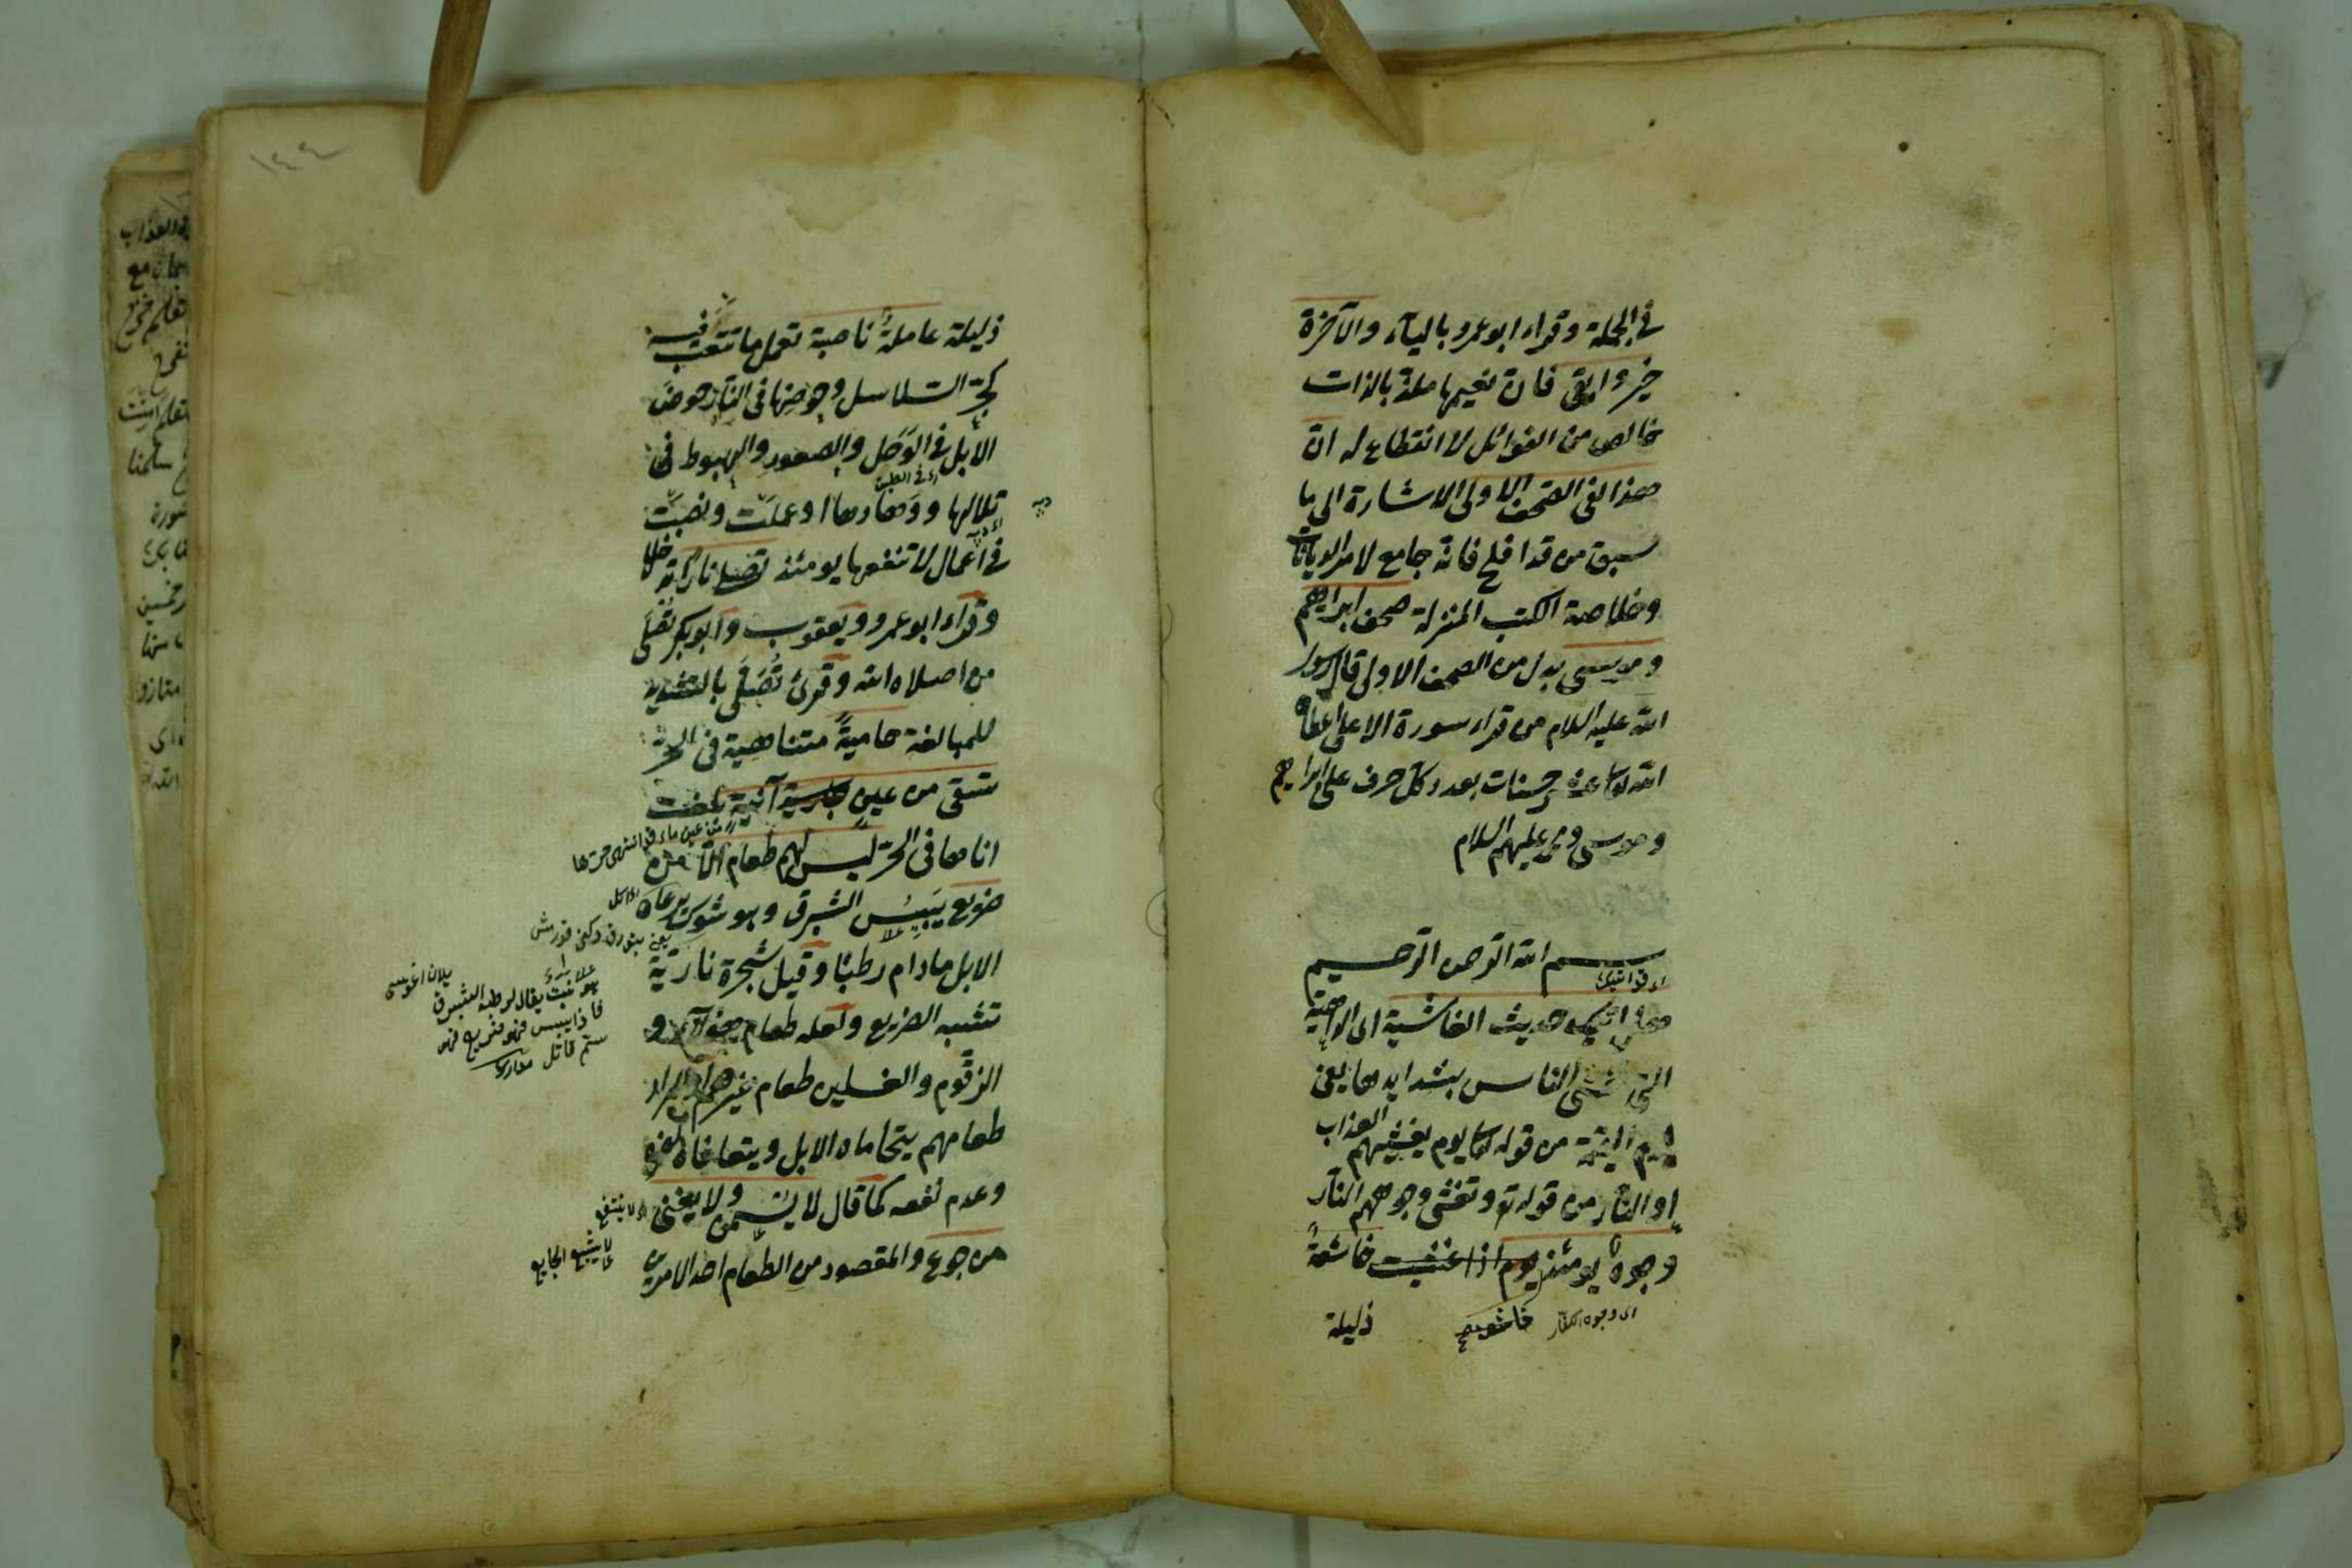 في الجملة وقراء ابو عمرو بالياء والآخرة
خير وابقى فان نعيمها ملذ بالذات
خالص من الغوائل لا انقطاع له ان
هذا لفى الصحف الاولى الاشارة الى ما
سبق من قد افلح فانه جامع لامر الديانات
وخلاصة الكتب المنزلة صحف ابراهيم
وموسى بدل من الصحف الاولى قال رسول
الله عليه السلام من قراء سورة الاعلى اعطاه
الله تعا عشر حسنات بعدد كل حرف على ابراهيم
وموسى ومحمد عليهم السلام
بسم الله الرحمن الرحيم
هل اتيك حديث الغاشية الداهية
التي تغشى الناس بشدايدها يعنى
يوم القيمة من قوله تعا يوم يغشيهم العذاب
او النار من قوله تع وتغشى وجوههم النار
وجوه يومئذ يوم اذا غشيت خاشعة
اى وجوه الكفار
ذليلة
١٤٤
ذليلة عاملة ناصبة تعمل ما تتعب فيه
كجر السلاسل وخوضها في النار خوض
الابل في الوحل والصعود والهبوط في
اى في الطين
تلالها ووهادها او عملت ونصبت
في اعمال لا تنفعها يومئذ تصلى نارا تدخلها
وقراء ابو عمرو ويعقوب وابو بكر تصلى
من اصلاه الله وقرئ تصلى بالتشديد
للمبالغة حامية متناهية في الحر
تسقى من عين جارية آنية بلغت
من عين ماء قد انتهى حرها
اناها في الحر ليس لهم طعام الا من
ضريع يبيس الشبرق وهو شوك يرعاه
اى اكل
الابل مادام رطبا وقيل شجرة نارية
هو نبت يقال لرطبه الشبرق
فاذا يبس فهو ضريع فهو
سم قاتل
تشبه الضريع ولعله طعام هؤلاء و
الزقوم والغسلين طعام غيرهم او المراد
طعامهم يتحاماه الابل ويتعافاه لضره
وعدم نفعه كما قال لا يسمن ولا يغنى
اى لا ينتفع
لا يشبع الجايع
من جوع والمقصود من الطعام احد الامرين